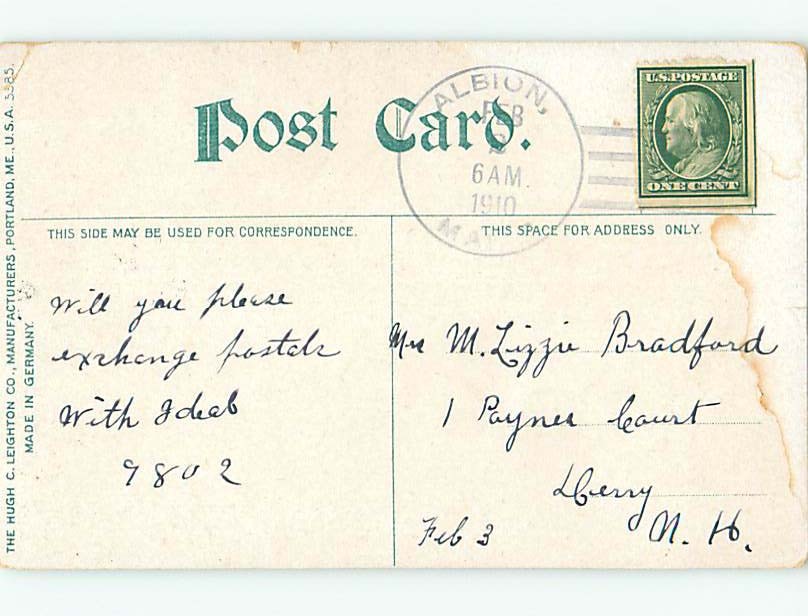 Post Card.
ALBION,
FEB
2
6 AM.
1910
U.S. POSTAGE
ONE CENT
THIS SIDE MAY BE USED FOR CORRESPONDENCE.
THIS SPACE FOR ADDRESS ONLY.
Will you please
exchange postals
With Ideal
9802
Mrs M. Lizzie Bradford
1 Paynes Court
Derry
N. H.
Feb 3
THE HUGH C. LEIGHTON CO., MANUFACTURERS, PORTLAND, ME., U.S.A. 5385.
MADE IN GERMANY.